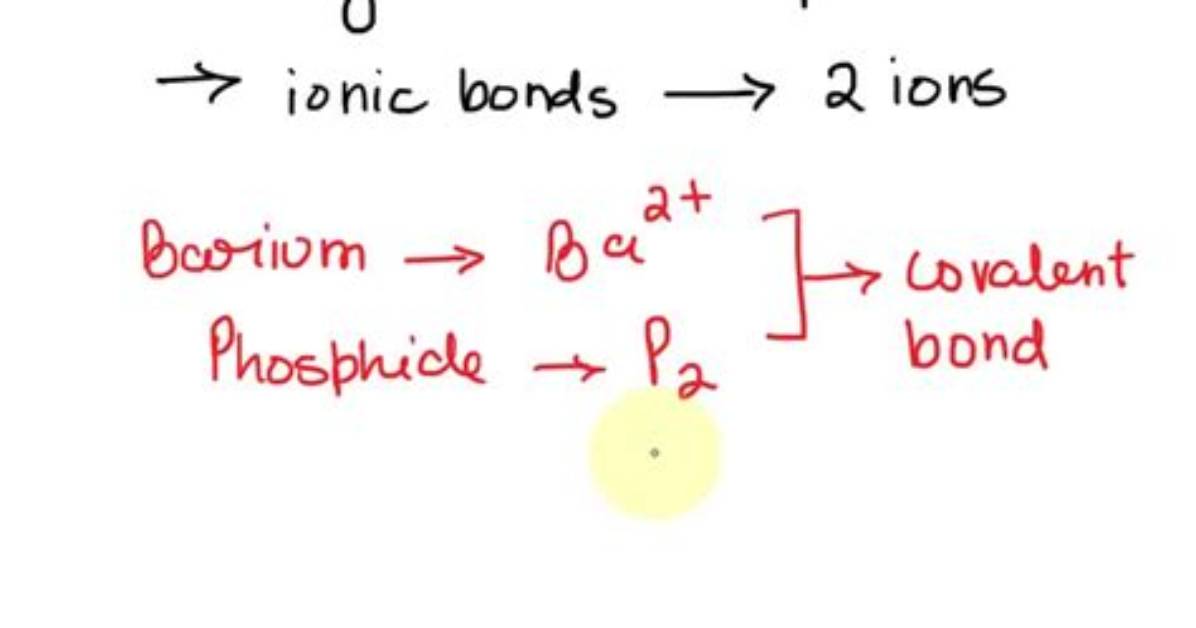 → ionic bonds → 2 ions
Barium → Ba²⁺
Phosphide → P₂
] → covalent
bond